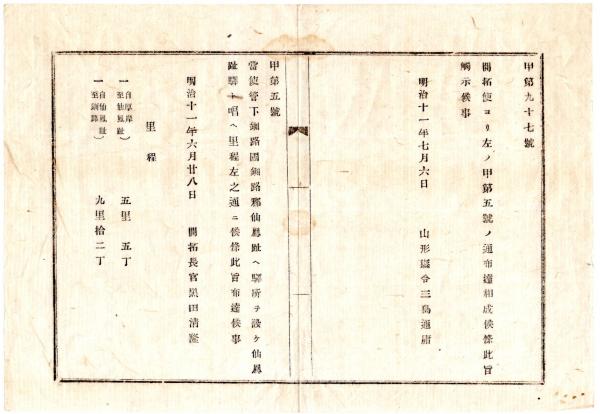 甲第九十七號
開拓使ヨリ左ノ甲第五號ノ通布達相成候條此旨
觸示候事
明治十一年七月六日
山形縣令三島通庸
甲第五號
當使管下釧路國釧路郡仙鳳趾ヘ驛所ヲ設ケ仙鳳
趾驛ト唱ヘ里程左之通ニ候條此旨布達候事
明治十一年六月廿八日
開拓長官黒田清隆
里程
一 自厚岸至仙鳳趾 五里五丁
一 自仙鳳趾至釧路 九里拾二丁